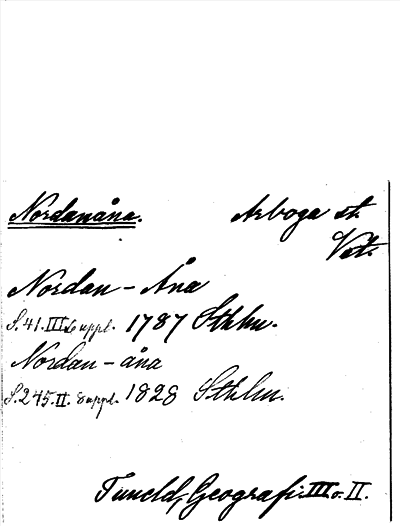 Nordanåna. Arboga st.
Vstm.
Nordan-Åna
S. 41. III. Suppl. 1787 Sthlm.
Nordan-åna
S. 245. II. Suppl. 1828 Sthlm.
Tuneld, Geografi. III o. II.